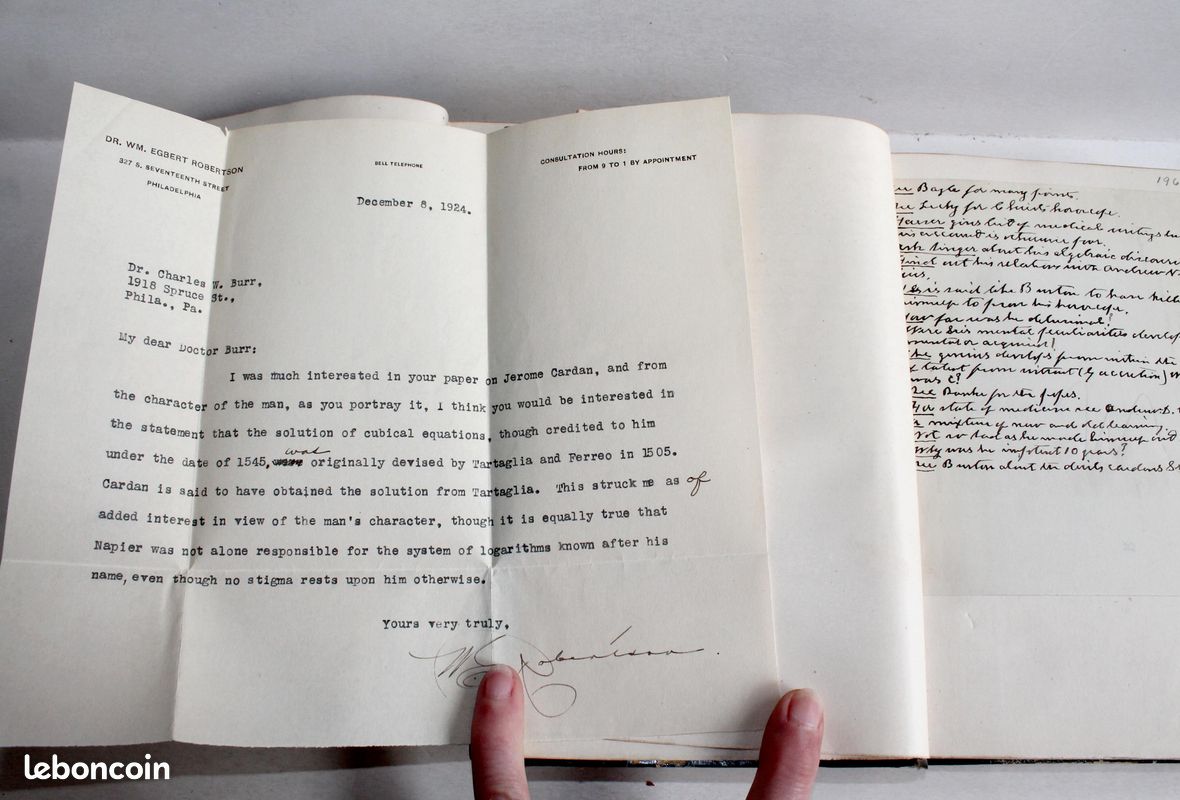 DR. WM. EGBERT ROBERTSON
327 S. SEVENTEENTH STREET
PHILADELPHIA
BELL TELEPHONE
CONSULTATION HOURS:
FROM 9 TO 1 BY APPOINTMENT
December 8, 1924.
Dr. Charles W. Burr,
1918 Spruce St.,
Phila., Pa.
My dear Doctor Burr:
I was much interested in your paper on Jerome Cardan, and from
the character of the man, as you portray it, I think you would be interested in
the statement that the solution of cubical equations, though credited to him
under the date of 1545, was originally devised by Tartaglia and Ferreo in 1505.
Cardan is said to have obtained the solution from Tartaglia. This struck me as of
added interest in view of the man's character, though it is equally true that
Napier was not alone responsible for the system of logarithms known after his
name, even though no stigma rests upon him otherwise.
Yours very truly,
W E Robertson.
196
Bayle for many points.
for Christs horoscope.
gives list of medical writings
his account is otherwise poor.
Singer about his algebraic
out his relations with Andrew V
is said like Burton to have
himself to prove his horoscope.
far was he delusional?
his mental peculiarities
or acquired?
genius develops from within
from without (by accretion)
was C?
for the popes.
state of medicine see Andrew D.
mixture of new and old learning
so bad as he made himself out
was he impotent 10 years?
Burton about the devils cardans
leboncoin